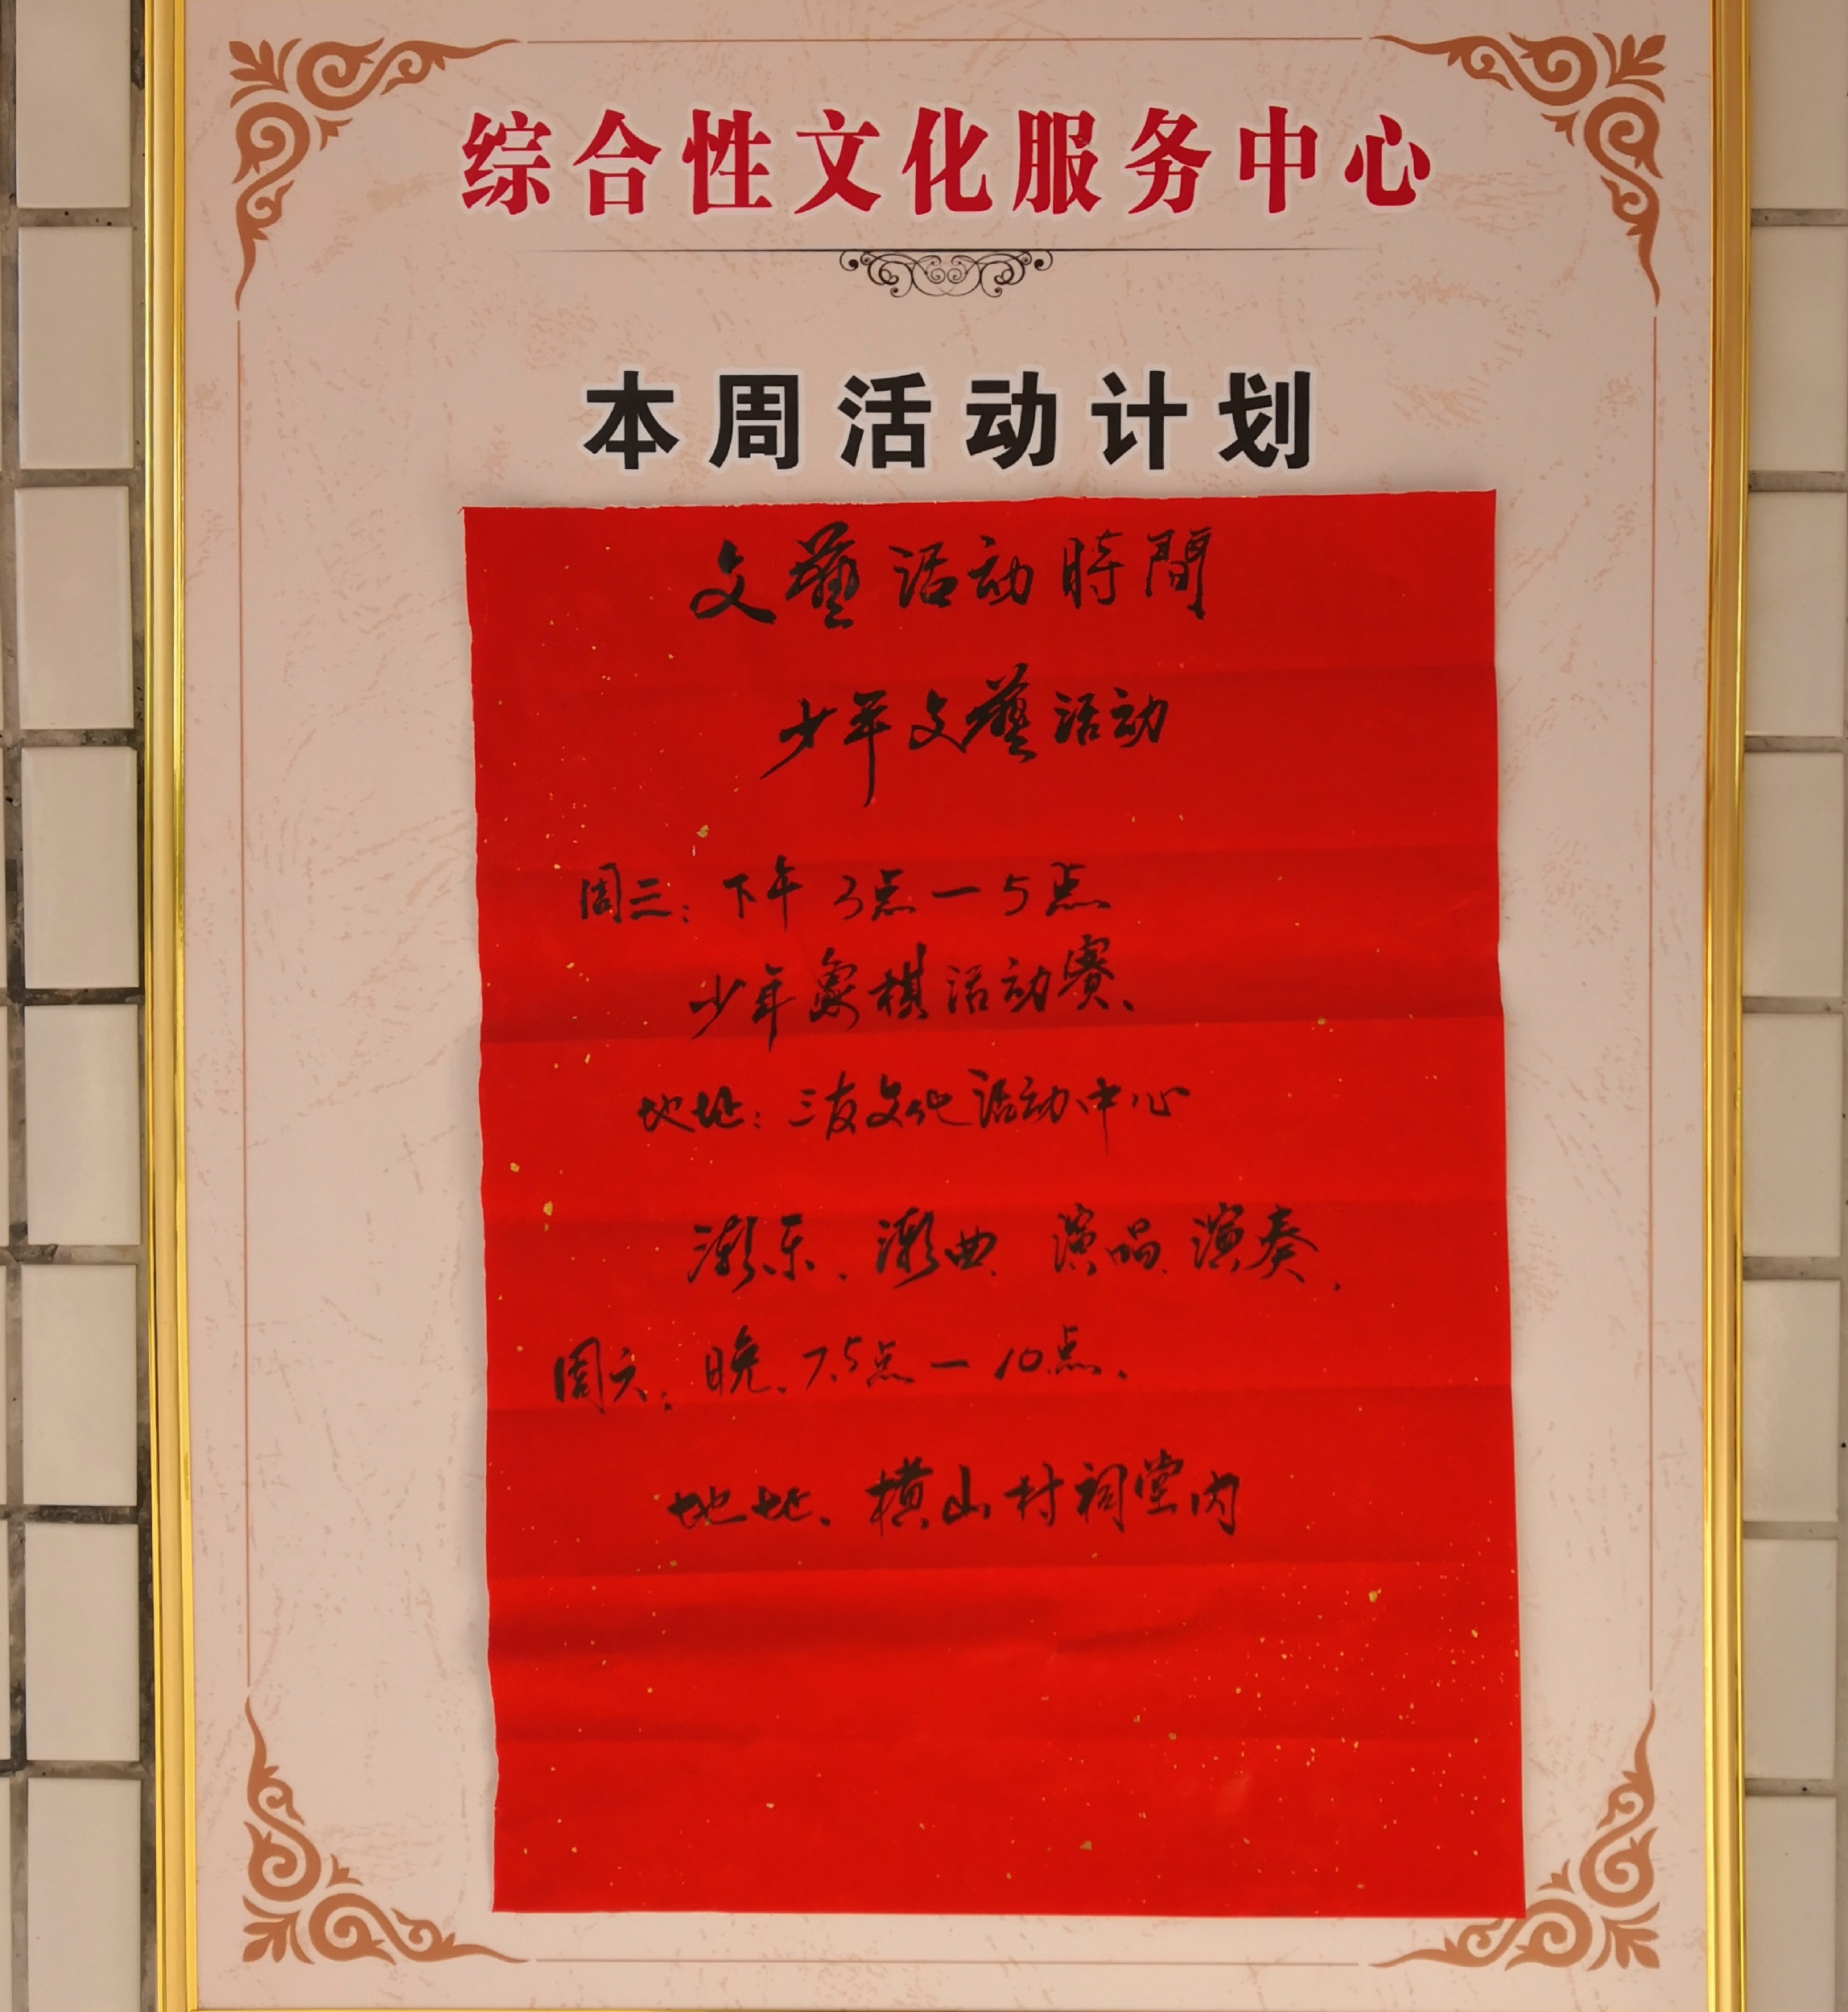 综合性文化服务中心
本周活动计划
文藝活动時間
少年文藝活动
周三：下午3点—5点
少年象棋活动赛、
地址：三友文化活动中心
潮乐、潮曲 演唱 演奏.
周六：晚.7.5点—10点.
地址、横山村祠堂内